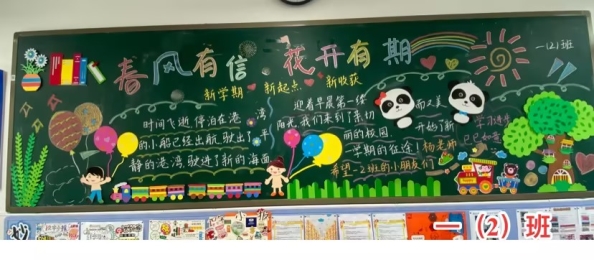 春风有信 花开有期
一(2)班
新学期 新起点 新收获
时间飞逝 停泊在港湾
的小船已经出航 驶出了平
静的港湾 驶进了新的海面
迎着早晨第一缕
阳光 我们来到了亲切
而又美
丽的校园
开始了新
一学期的征途!
杨老师
希望一2班的小朋友们
学习进步
一(2)班